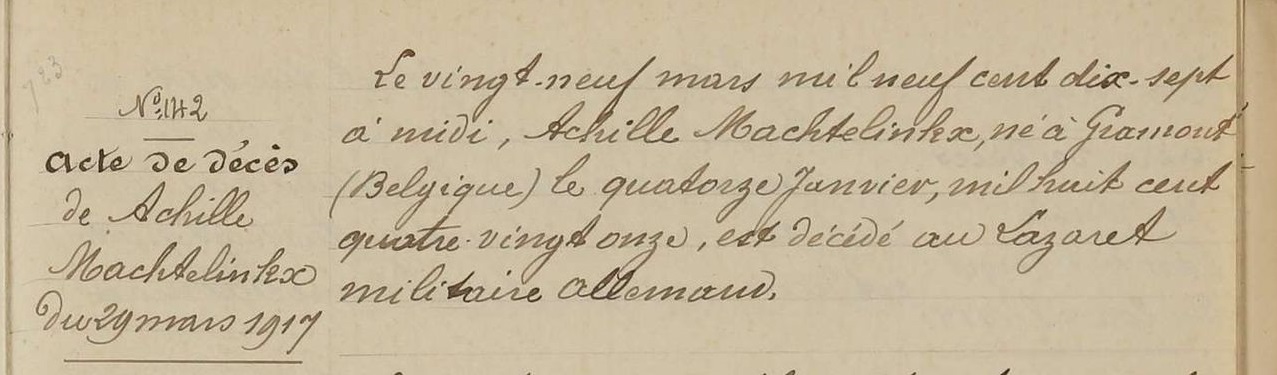 723
No 142
Acte de décès
de Achille
Machtelinkx
Du 29 mars 1917
Le vingt-neuf mars mil neuf cent dix-sept
à midi, Achille Machtelinkx, né à Gramont
(Belgique) le quatorze Janvier, mil huit cent
quatre-vingt onze, est décédé au Lazaret
militaire allemand.